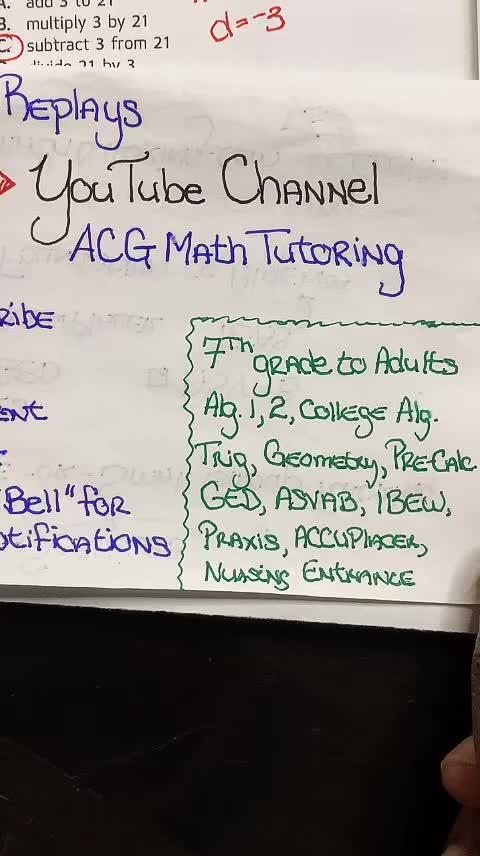 A. add 3 to 21
B. multiply 3 by 21
C. subtract 3 from 21
divide 21 by 3
d=-3
REPLAYS
YouTube CHANNEL
ACG MATH TUTORING
RIBE
ENT
"Bell" for
OTIFICATIONS
7TH grade to Adults
Alg. 1, 2, College Alg.
Trig, Geometry, PRE-CALC
GED, ASVAB, IBEW,
PRAXIS, ACCUPLACER,
NURSING ENTRANCE